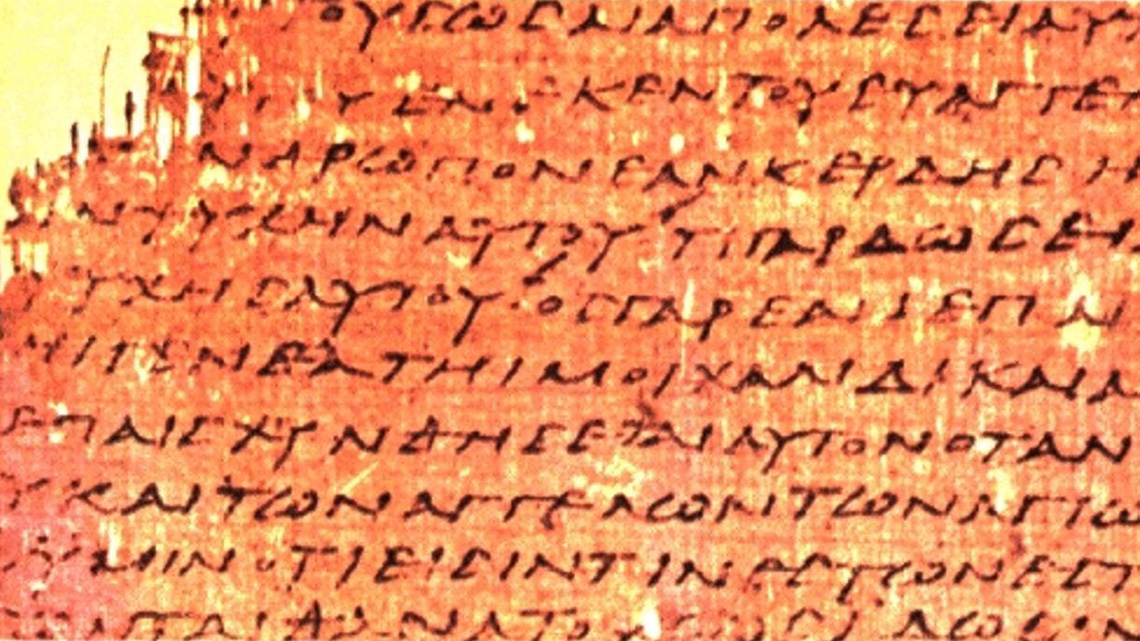 ΟΥϹΩϹΑΙΑΠΟΛΕϹΕΙΑΥ
ΕΝΕΚΕΝΤΟΥΕΥΑΓΓΕΛ
ΝΘΡΩΠΟΝΕΑΝΚΕΡΔΗϹΗ
ΗΝΨΥΧΗΝΑΥΤΟΥΤΙΓΑΡΔΩϹΕΙ
ΥΧΗϹΑΥΤΟΥΟϹΓΑΡΕΑΝΕΠ
ΓΕΝΕΑΤΗΙΜΟΙΧΑΛΙΔΙΚΑΙΑ
ΕΠΑΙϹΧΥΝΘΗϹΕΤΑΙΑΥΤΟΝΟΤΑΝ
ΥΚΑΙΤΩΝΑΓΓΕΛΩΝΤΩΝΑΓΙΩ
ΥΜΙΝΟΤΙΕΙϹΙΝΤΙΝΕϹΤΩΝΕϹΤ
ΤΑΙΘΑΝΑΤΟΥ